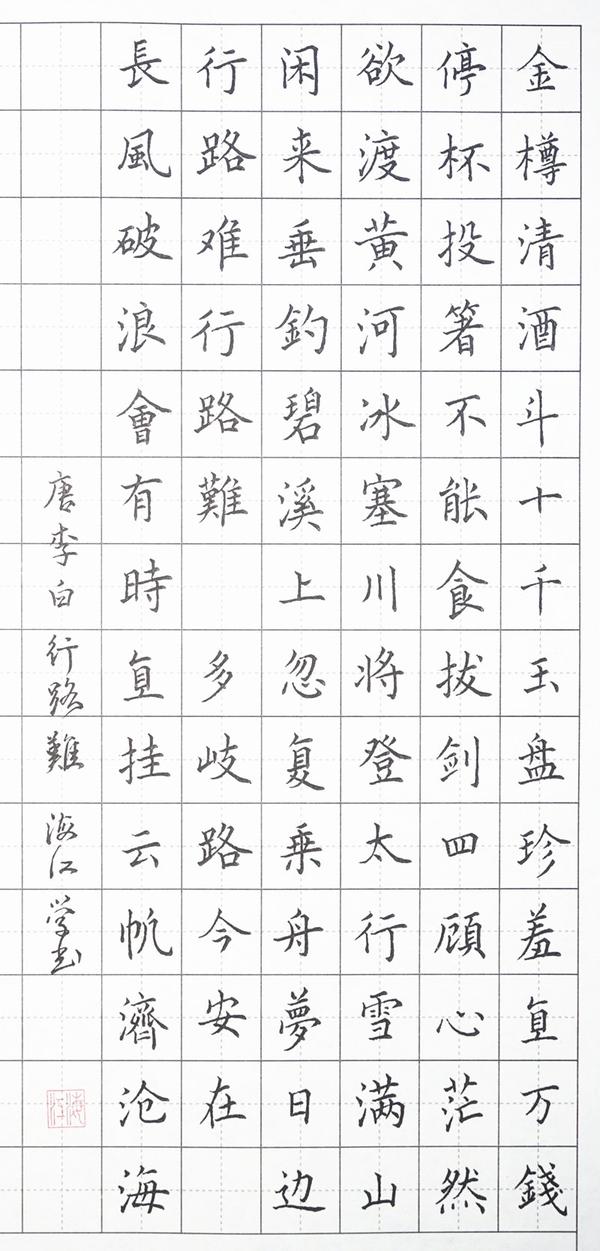 金樽清酒斗十千玉盘珍羞直万錢
停杯投箸不能食拔剑四顧心茫然
欲渡黄河冰塞川将登太行雪满山
闲来垂釣碧溪上忽复乘舟夢日边
行路难行路難 多岐路今安在
長風破浪會有時直挂云帆濟沧海
唐李白 行路難 海江学书
海江